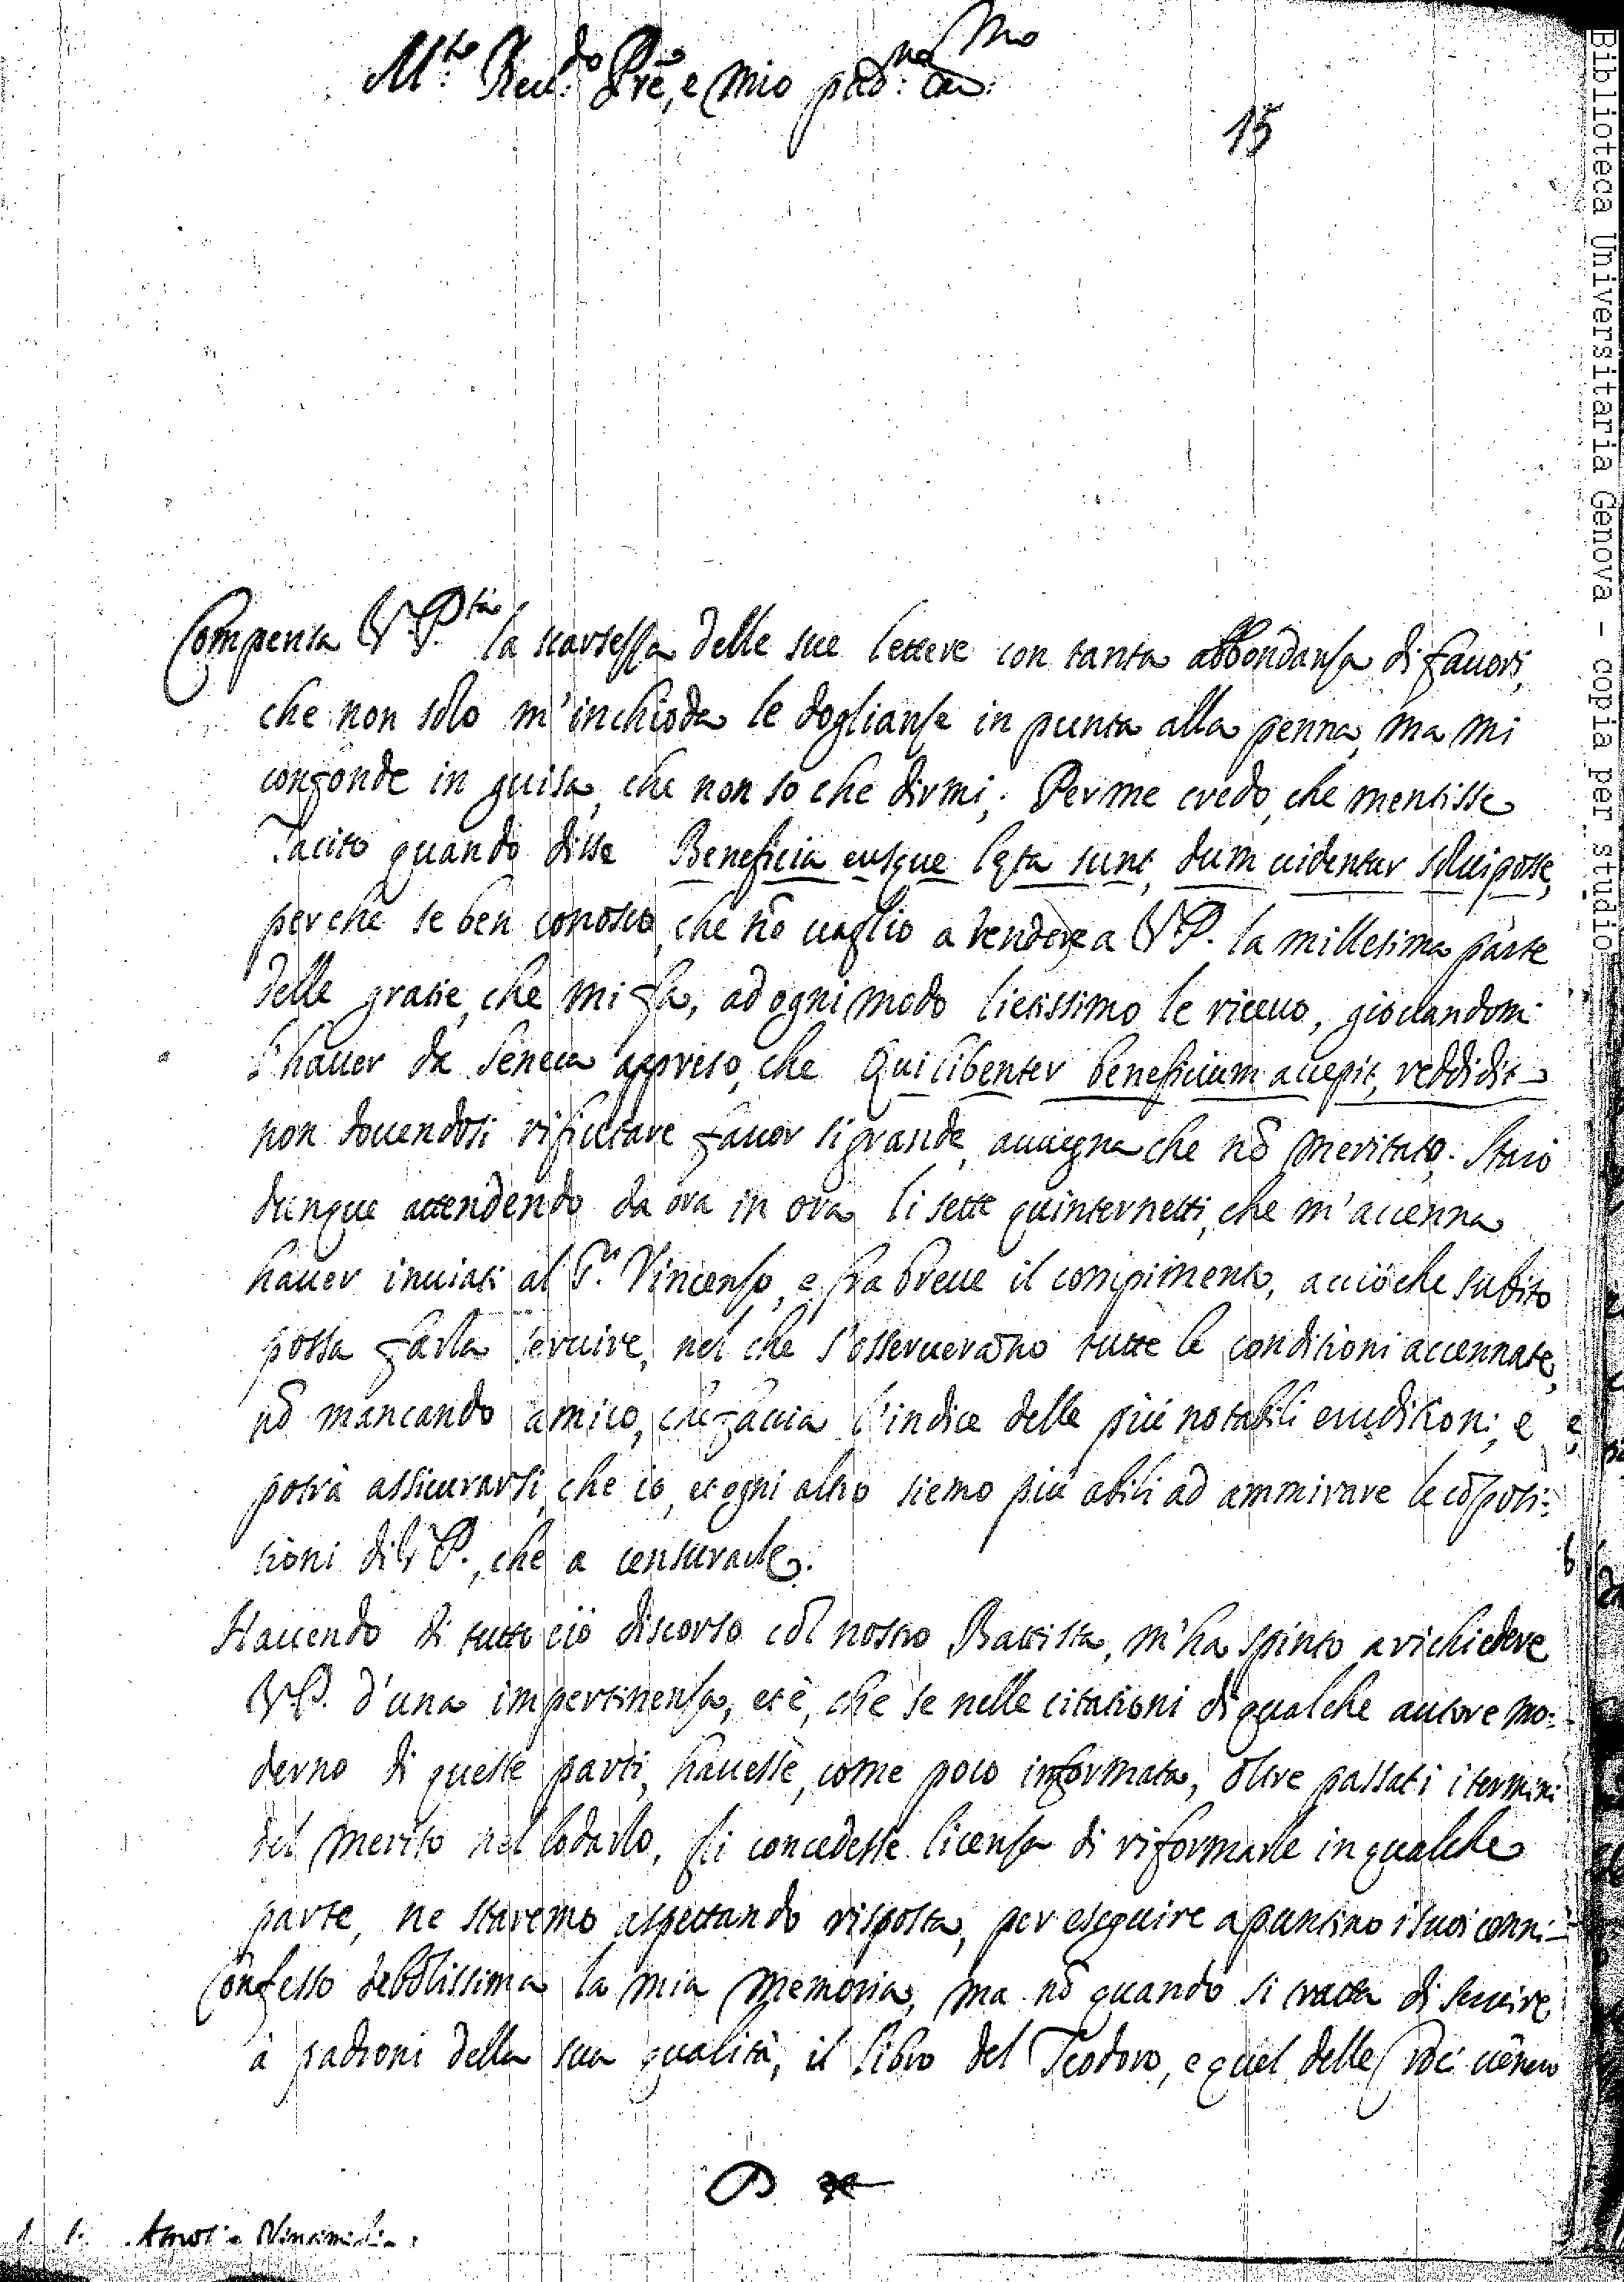 M.to Reu.do Pre, e mio pad: na mo
15
Compensa V. P.tà la scarsezza delle sue lettere con tanta abbondanza di fauori,
che non solo m'inchioda le doglianze in punta alla penna, ma mi
confonde in guisa, che non so che dirmi; Per me credo, che mentisse
Tacito quando disse Beneficia eusque lęta sunt, dum uidentur solui posse,
perche se ben conosco, che nō uaglio a rendere a V.P. la millesima parte
delle gratie, che mi fà, ad ogni modo lietissimo le riceuo, giouandomi
l'hauer da Seneca appreso, che Qui libenter beneficium accepit, reddidit
non douendosi rifiutare fauor si grande, auuegna che nō meritato. Starò
dunque attendendo da ora in ora li sette quinternetti, che m'accenna
hauer inuiati al S.r Vincenzo, e fra breue il compimento, acciò che subito
possa farla seruire, nel che s'osserueranno tutte le conditioni accennate,
nō mancando amico, che faccia l'indice delle più notabili eruditioni, e
potrà assicurarsi, che io, et ogni altro siemo più abili ad ammirare le cōposi:
tioni di V.P., che a censurarle.
Hauendo di tutto ciò discorso col nostro Battista, m'ha spinto a richiedere
V.P. d'una impertinenza, et è, che se nelle citationi di qualche autore mo:
derno di queste parti, hauesse, come poco informata, oltre passati i termini
del merito nel lodarlo, gli concedesse licenza di riformarle in qualche
parte, ne staremo aspettando risposta, per eseguire a puntino i suoi cenni.
Confesso debolissima la mia memoria, ma nō quando si tratta di seruire
à padroni della sua qualità, il libro del Teodoro, e quel delle Voci
Biblioteca Universitaria Genova - copia per studio